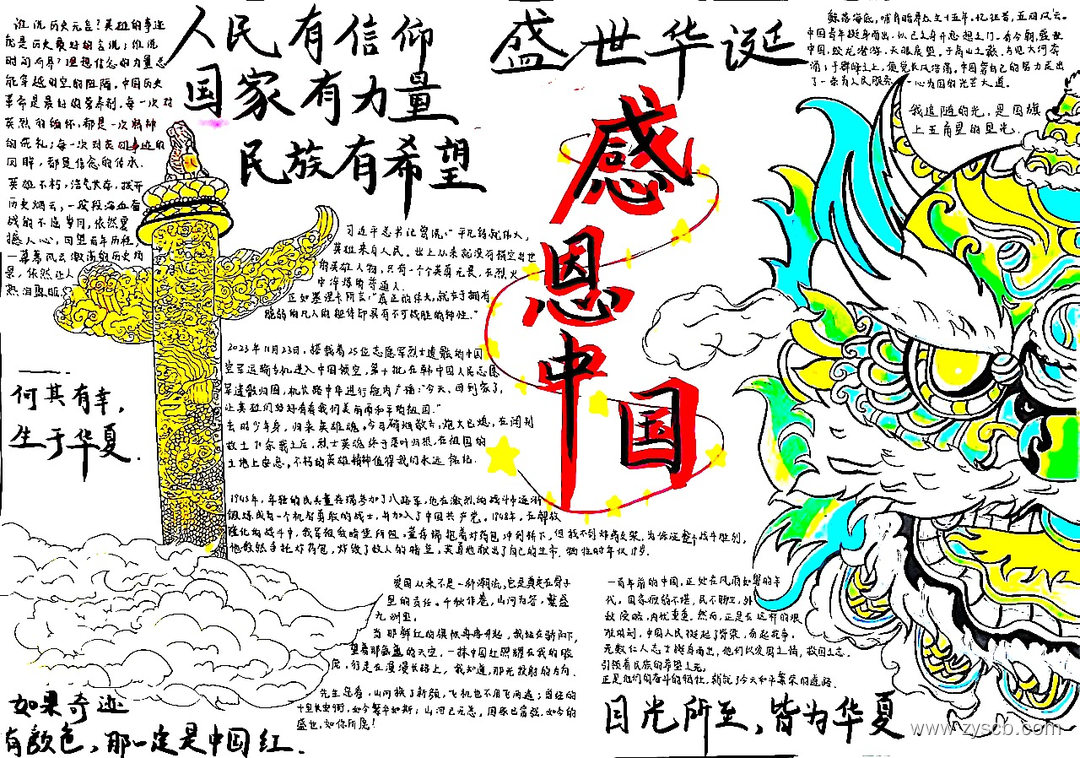 谁说历史无言？英雄的事迹
就是历史最好的言说；谁说
时间有身？理想信念的力量总
能穿越时空的阻隔，中国历史
革命是最好的营养剂，每一次对
英烈的缅怀，都是一次精神
的洗礼；每一次对英雄事迹的
回眸，都是信念的传承。
英雄不朽，浩气长存，拨开
历史烟云，一段段浴血奋
战的不屈岁月，依然震
撼人心，回望百年历程，
一幕幕风云激荡的历史场
景，依然让人
热泪盈眶
人民有信仰
国家有力量
民族有希望
盛世华诞
感恩中国
中国青年挺身而出，以己之身开思想之门，看今朝，盛世
中国，蛟龙潜游，天眼展望，于高山之巅，方见大河奔
涌；于群峰之上，便觉长风浩荡，中国靠自己的努力走出
了一条为人民服务，一心为国的光芒大道。
我追随的光，是国旗
上五角星的星光。
习近平总书记曾说：“平凡铸就伟大，
英雄来自人民。世上从来就没有横空出世
的英雄人物，只有一个个英勇无畏，在烈火
中淬炼的普通人。
正如塞涅卡所言：“真正的伟大，就在于拥有
脆弱的凡人的躯体却具有不可战胜的神性。”
2023年11月23日，搭载着25位志愿军烈士遗骸的中国
空军运输专机进入中国领空，第十批在韩中国人民志愿
军遗骸归国，机长路中年进行舱内广播：“今天，回到家了，
让英雄们好好看看我们美丽而和平的祖国。”
去时少年身，归来英雄魂，今得硝烟散去，炮火已熄，在阔别
故土70余载之后，烈士英雄终于落叶归根，在祖国的
土地上安息，不朽的英雄精神值得我们永远铭记。
何其有幸，
生于华夏
1945年，年轻的民兵董存瑞参加了八路军，他在激烈的战斗中逐渐
锻炼成为一个机智勇敢的战士，并加入了中国共产党。1948年，在解放
隆化的战斗中，我军被敌暗堡所阻，董存瑞抱着炸药包冲到桥下，但找不到炸药支架，为保证整个战斗胜利，
他毅然手托炸药包，炸毁了敌人的暗堡，英勇地献出了自己的生命，牺牲时年仅19岁。
爱国从来不是一种潮流，它是真实在骨子
里的责任。千秋作卷，山河为答，繁盛
九州里。
当那鲜红的旗帜再再升起，我站在骄阳下，
望着那蔚蓝的天空，一抹中国红照耀在我的脸
庞，行走在漫漫长路上，我知道，那光投射的方向。
先生且看，山河换了新颜，飞机也不用飞两遍；当年的
十里长安街，如今繁华如斯；山河已无恙，国家已富强，如今的
盛世，如你所愿！
一百年前的中国，正处在风雨如磐的年
代，国家破弱不堪，民不聊生，外
敌侵略，内忧重重。然而，正是在这样的艰
难时刻，中国人民挺起了脊梁，奋起抗争，
无数仁人志士挺身而出，他们以爱国之情，救国之志，
引领着民族的希望之光。
正是他们的奋斗的牺牲，铸就了今天和平繁荣的道路。
如果奇迹
有颜色，那一定是中国红.
目光所至，皆为华夏
www.zyscb.com